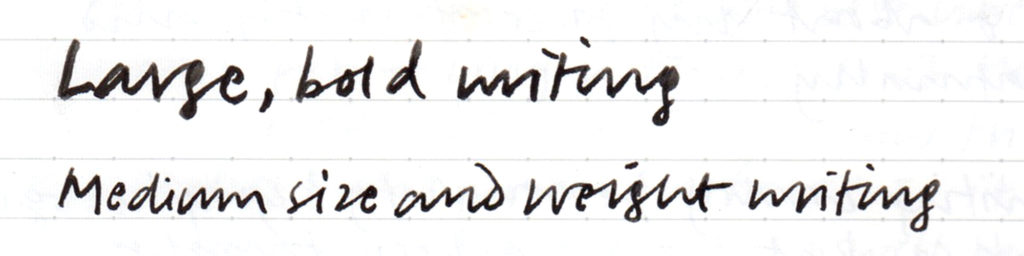 Large, bold writing
Medium size and weight writing